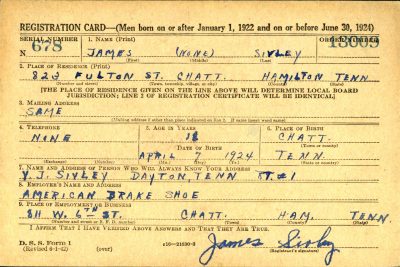 REGISTRATION CARD—(Men born on or after January 1, 1922 and on or before June 30, 1924)
SERIAL NUMBER 1. NAME (Print) ORDER NUMBER
N 678 JAMES (NONE) SIVLEY 13009
(First) (Middle) (Last)
2. PLACE OF RESIDENCE (Print)
823 FULTON ST. CHATT. HAMILTON TENN
(Number and street) (Town, township, village, or city) (County) (State)
[THE PLACE OF RESIDENCE GIVEN ON THE LINE ABOVE WILL DETERMINE LOCAL BOARD
JURISDICTION; LINE 2 OF REGISTRATION CERTIFICATE WILL BE IDENTICAL]
3. MAILING ADDRESS
SAME
[Mailing address if other than place indicated on line 2. If same insert word same]
4. TELEPHONE 5. AGE IN YEARS 6. PLACE OF BIRTH
NONE 18 CHATT.
DATE OF BIRTH
APRIL 7 1924 TENN.
(Mo.) (Day) (Yr.)
7. NAME AND ADDRESS OF PERSON WHO WILL ALWAYS KNOW YOUR ADDRESS
V.J. SIVLEY DAYTON, TENN RT.#1
8. EMPLOYER'S NAME AND ADDRESS
AMERICAN BRAKE SHOE
9. PLACE OF EMPLOYMENT OR BUSINESS
811 W. 6TH ST. CHATT. HAM. TENN.
(Number and street or R. F. D. number) (Town) (County) (State)
I AFFIRM THAT I HAVE VERIFIED ABOVE ANSWERS AND THAT THEY ARE TRUE.
D. S. S. Form 1
(Revised 6-1-42) (over) James Sivley
(Registrant's signature)